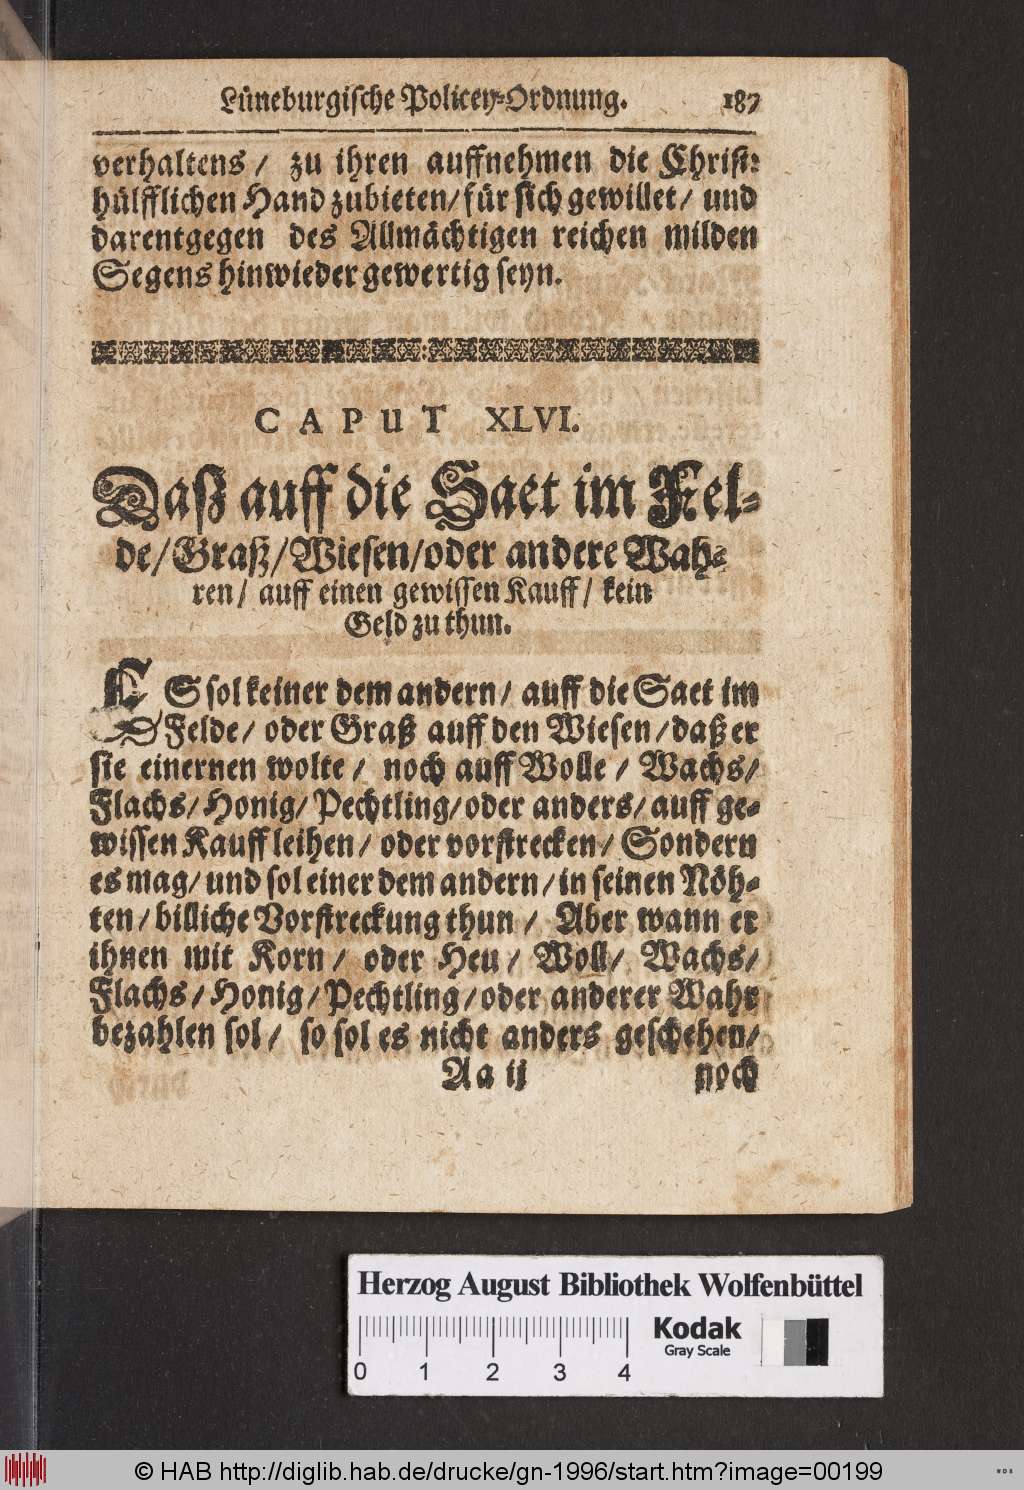 Lüneburgische Policey-Ordnung. 187
verhaltens / zu ihren auffnehmen die Christ-
hülfflichen Hand zubieten / für sich gewillet / und
darentgegen des Allmächtigen reichen milden
Segens hinwieder gewertig seyn.
CAPUT XLVI.
Daß auff die Saet im Fel-
de / Graß / Wiesen / oder andere Wah-
ren / auff einen gewissen Kauff / kein
Geld zu thun.
ES sol keiner dem andern / auff die Saet im
Felde / oder Graß auff den Wiesen / daß er
sie einernen wolte / noch auff Wolle / Wachs /
Flachs / Honig / Pechtling / oder anders / auff ge-
wissen Kauff leihen / oder vorstrecken / Sondern
es mag / und sol einer dem andern / in seinen Nöh-
ten / billiche Vorstreckung thun / Aber wann er
ihnen mit Korn / oder Heu / Woll / Wachs /
Flachs / Honig / Pechtling / oder anderer Wahr
bezahlen sol / so sol es nicht anders geschehen /
Aa ij noch
Herzog August Bibliothek Wolfenbüttel
0 1 2 3 4
Kodak
Gray Scale
© HAB http://diglib.hab.de/drucke/gn-1996/start.htm?image=00199